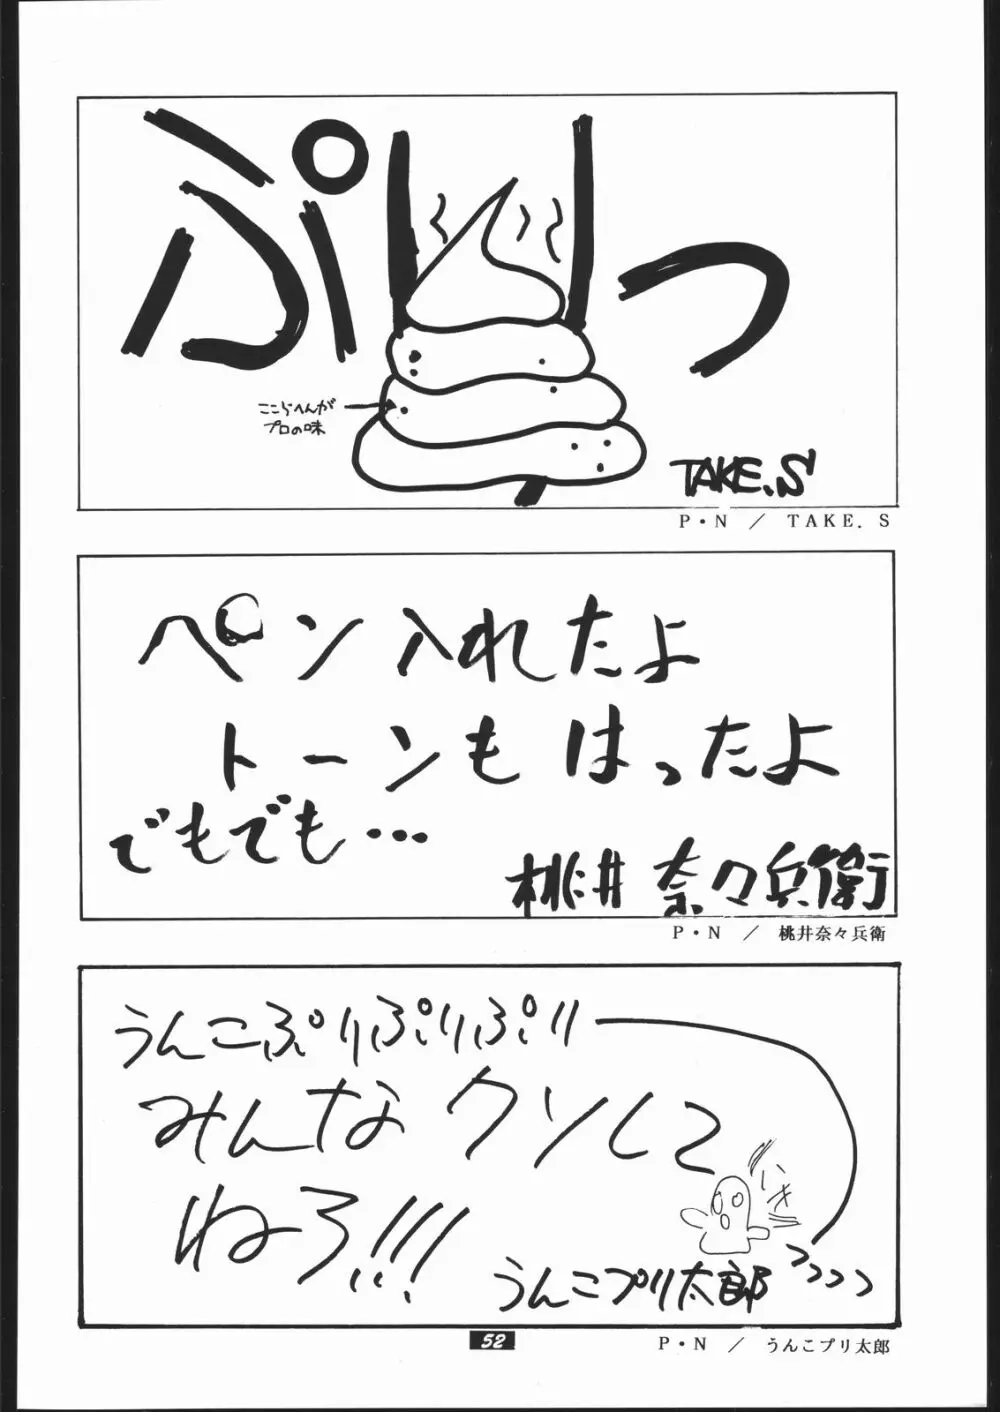 ぷりっ
ここらへんが
プロの味
TAKE.S
P・N ／ TAKE. S
ペン入れたよ
トーンもはったよ
でもでも…
桃井 奈々兵衛
P・N ／ 桃井奈々兵衛
うんこぷりぷりぷり
みんなクソして
ねろ!!!
うんこプリ太郎
P・N ／ うんこプリ太郎
52